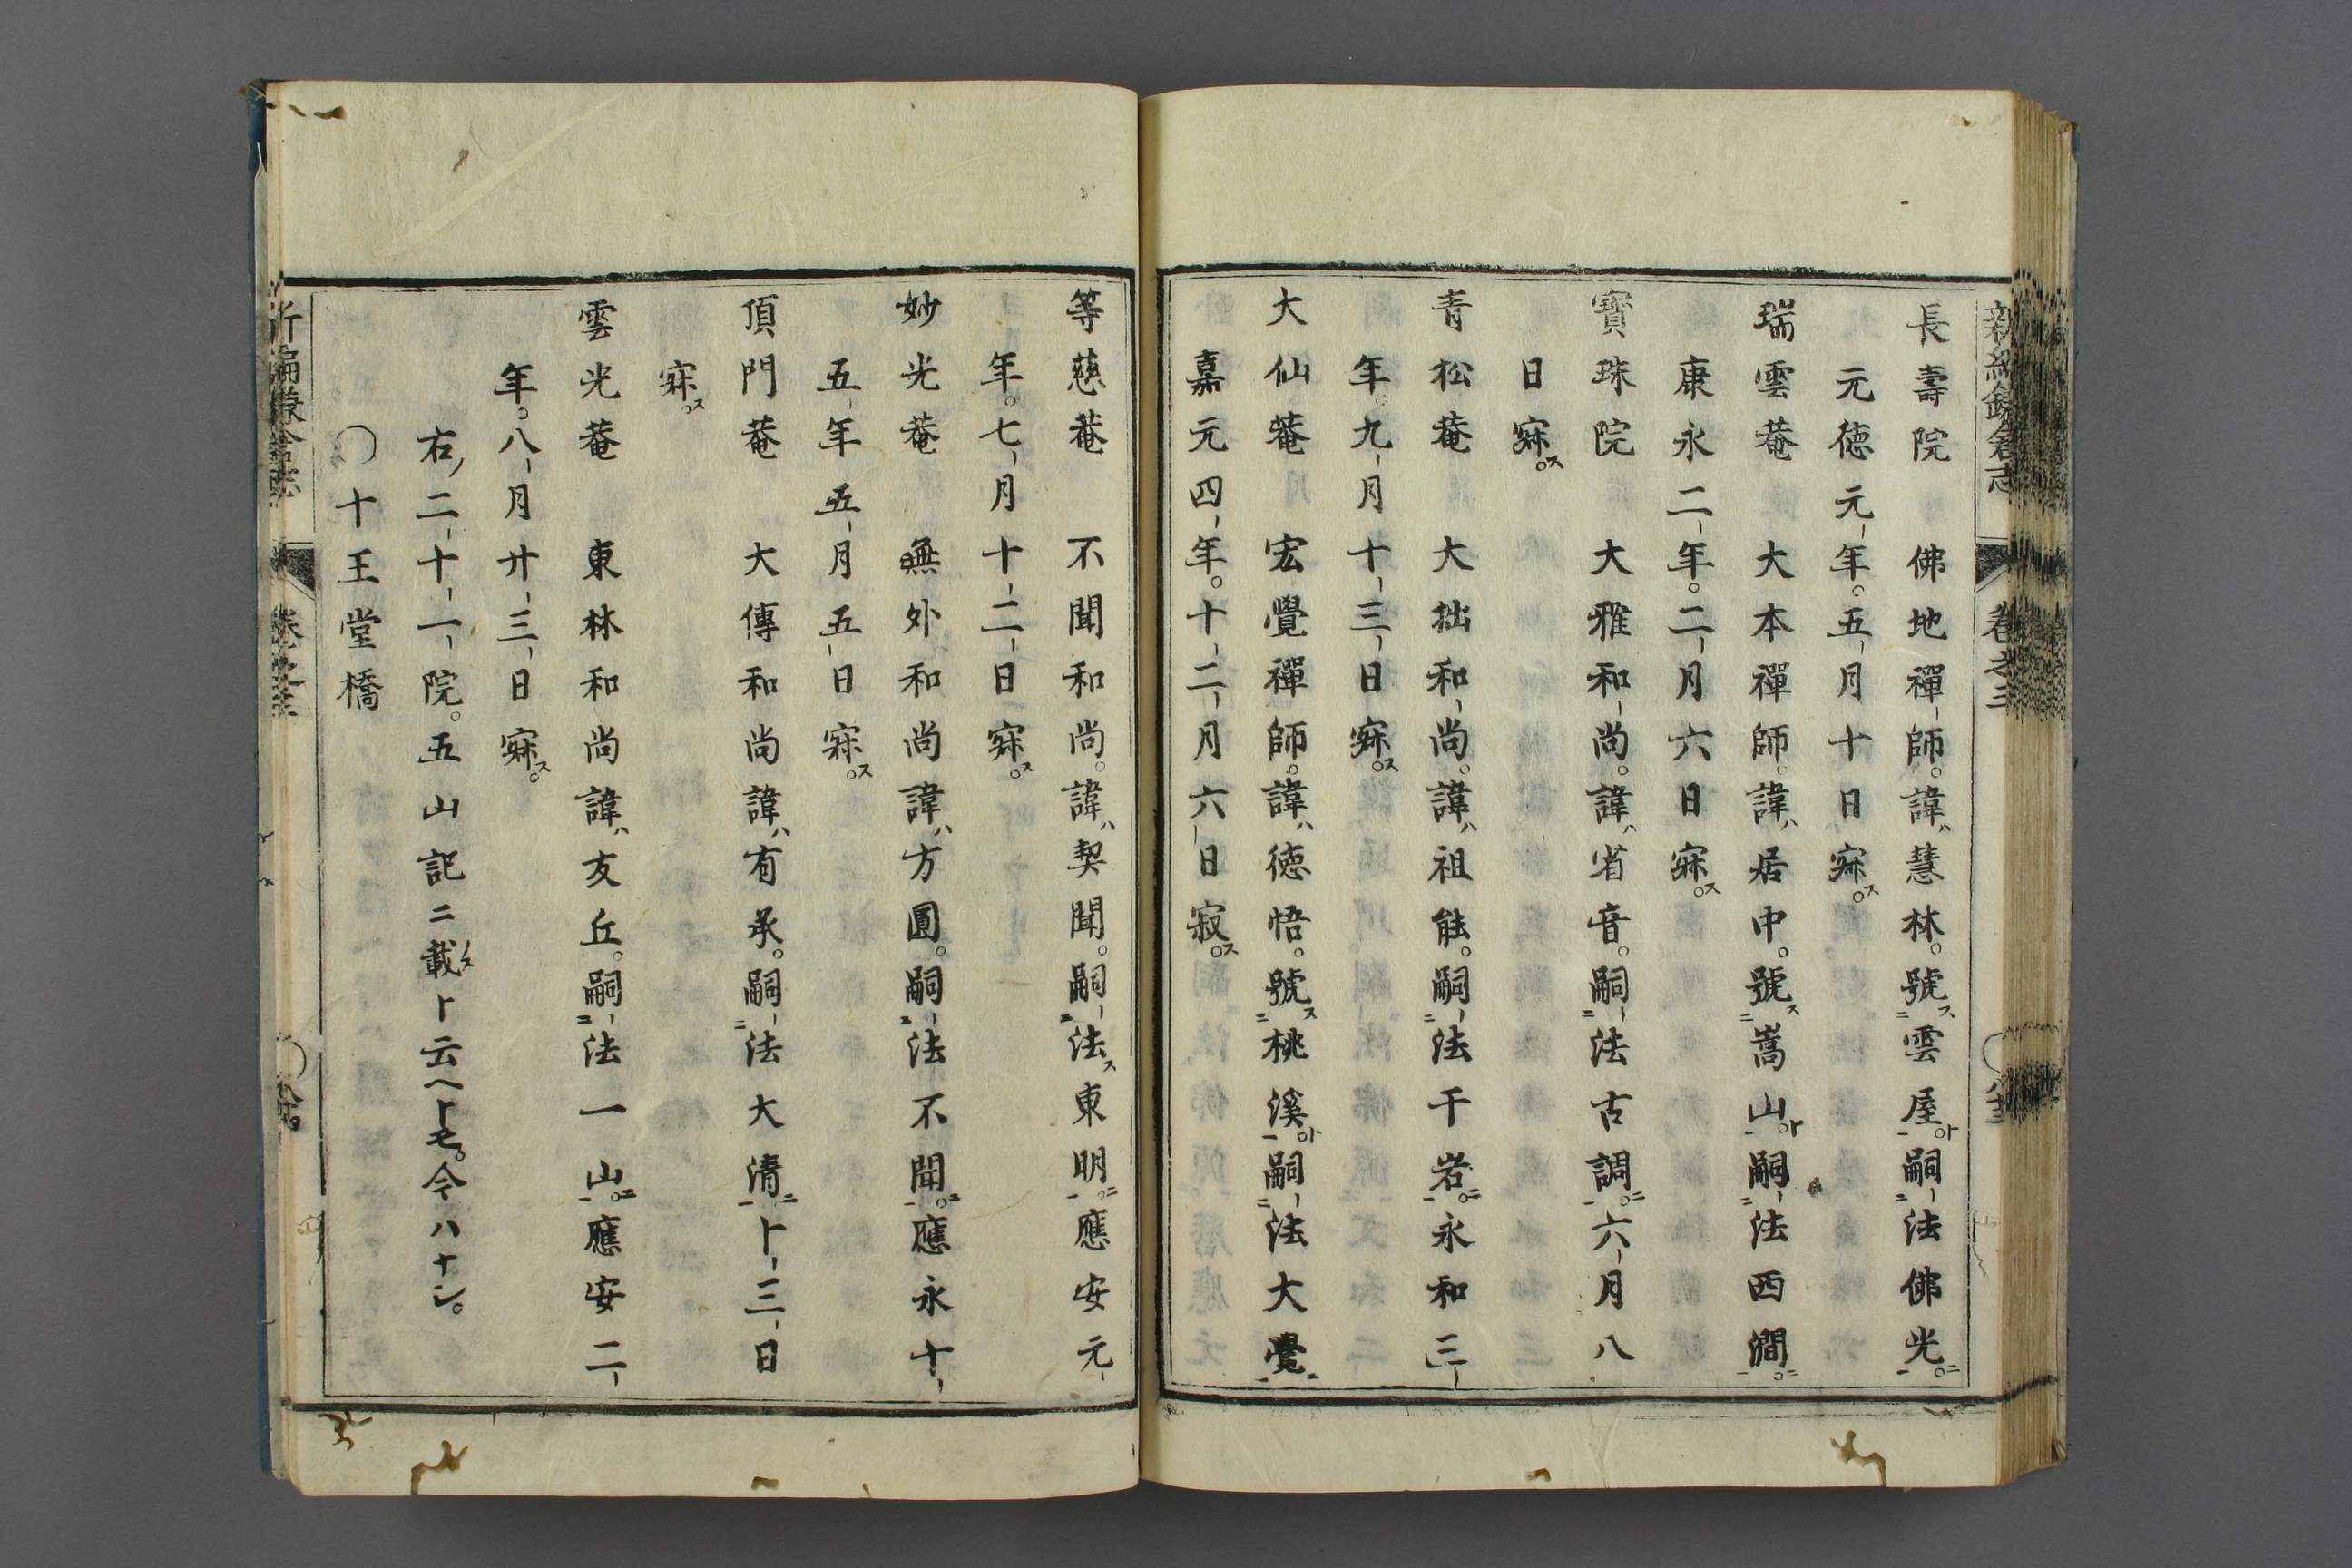 新編鎌倉志 卷之三
長壽院 佛地禪師。諱ハ慧林。號ス雲屋ト。嗣法佛光ニ。
元德元年。五月十日寂ス。
瑞雲菴 大本禪師。諱ハ居中。號ス嵩山ト。嗣法西澗ニ。
康永二年。二月六日寂ス。
寶珠院 大雅和尚。諱ハ省音。嗣法古調ニ。六月八
日寂ス。
青松菴 大拙和尚。諱ハ祖能。嗣法千岩ニ。永和三
年。九月十三日寂ス。
大仙菴 宏覺禪師。諱ハ德悟。號ス桃溪ト。嗣法大覺ニ
嘉元四年。十二月六日寂ス。
等慈菴 不聞和尚。諱ハ契聞。嗣法ス東明ニ。應安元
年。七月十二日寂ス。
妙光菴 無外和尚諱ハ方圓。嗣法不聞ニ。應永十
五年五月五日寂ス。
頂門菴 大傳和尚諱ハ有承。嗣法大淸ニ十三日
寂ス。
雲光菴 東林和尚諱ハ友丘。嗣法一山ニ。應安二
年。八月廿三日寂ス。
右ノ二十一院。五山記ニ載スト云ヘトモ。今ハナシ。
〇十王堂橋
新編鎌倉志 卷之三